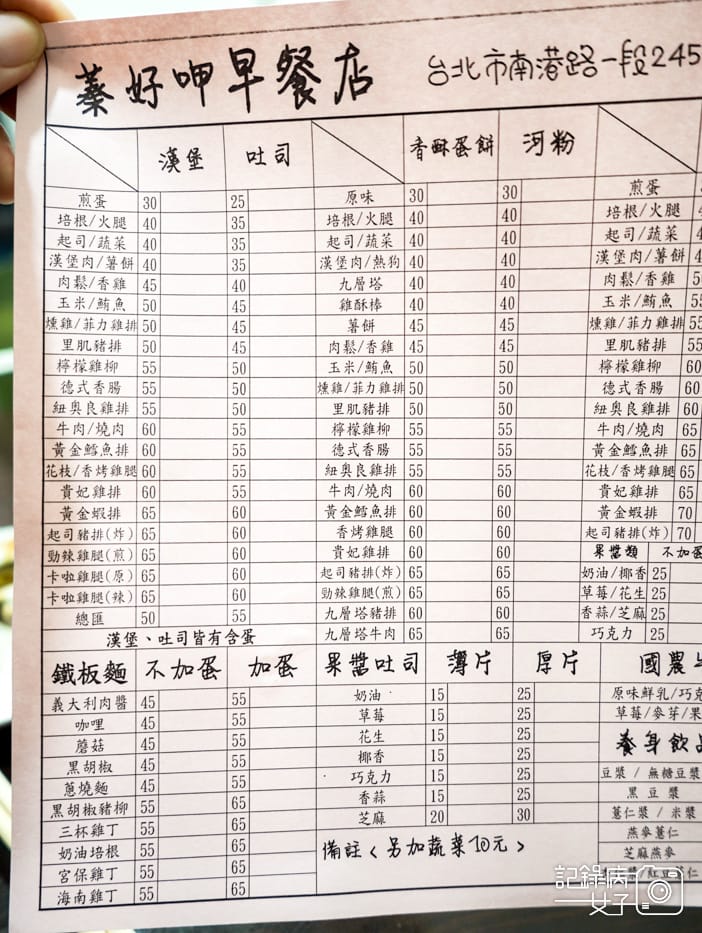 蓁好呷早餐店 台北市南港路一段245
漢堡 吐司
煎蛋 30 25
培根/火腿 40 35
起司/蔬菜 40 35
漢堡肉/薯餅 40 35
肉鬆/香雞 45 40
玉米/鮪魚 50 45
燻雞/菲力雞排 50 45
里肌豬排 50 45
檸檬雞柳 55 50
德式香腸 55 50
紐奧良雞排 55 50
牛肉/燒肉 60 55
黃金鱈魚排 60 55
花枝/香烤雞腿 60 55
貴妃雞排 60 55
黃金蝦排 65 60
起司豬排(炸) 65 60
勁辣雞腿(煎) 65 60
卡啦雞腿(原) 65 60
卡啦雞腿(辣) 65 60
總匯 50 55
漢堡、吐司皆有含蛋
香酥蛋餅 河粉
原味 30 30
培根/火腿 40 40
起司/蔬菜 40 40
漢堡肉/熱狗 40 40
九層塔 40 40
雞酥棒 40 40
薯餅 45 45
肉鬆/香雞 45 45
玉米/鮪魚 50 50
燻雞/菲力雞排 50 50
里肌豬排 50 50
檸檬雞柳 55 55
德式香腸 55 55
紐奧良雞排 55 55
牛肉/燒肉 60 60
黃金鱈魚排 60 60
香烤雞腿 60 60
貴妃雞排 60 60
起司豬排(炸) 65 65
勁辣雞腿(煎) 65 65
九層塔豬排 60 60
九層塔牛肉 65 65
煎蛋
培根/火腿
起司/蔬菜
漢堡肉/薯餅
肉鬆/香雞
玉米/鮪魚 55
燻雞/菲力雞排 55
里肌豬排 55
檸檬雞柳 60
德式香腸 60
紐奧良雞排 60
牛肉/燒肉 65
黃金鱈魚排 65
花枝/香烤雞腿 65
貴妃雞排 65
黃金蝦排 70
起司豬排(炸) 70
果醬類 不加蛋
奶油/椰香 25
草莓/花生 25
香蒜/芝麻 25
巧克力 25
鐵板麵 不加蛋 加蛋
義大利肉醬 45 55
咖哩 45 55
蘑菇 45 55
黑胡椒 45 55
蔥燒麵 45 55
黑胡椒豬柳 55 65
三杯雞丁 55 65
奶油培根 55 65
宮保雞丁 55 65
海南雞丁 55 65
果醬吐司 薄片 厚片
奶油 15 25
草莓 15 25
花生 15 25
椰香 15 25
巧克力 15 25
香蒜 15 25
芝麻 20 30
備註<另加蔬菜10元>
國農
原味鮮乳/巧克
草莓/麥芽/果
養身飲品
豆漿 / 無糖豆漿
黑豆漿
薏仁漿 / 米漿
燕麥薏仁
芝麻燕麥
紅豆薏仁
記錄病女子